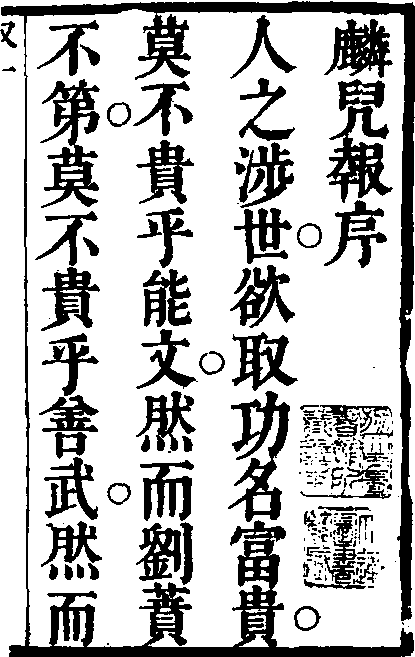 麟兒報序
人之涉世○欲取功名富貴○
莫不貴乎能文○然而劉蕡
不第○莫不貴乎善武○然而